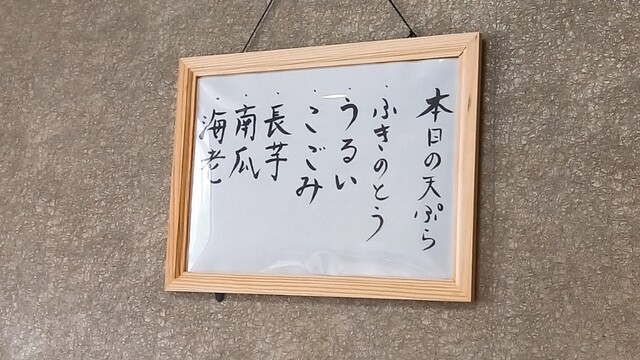 本日の天ぷら
・ふきのとう
・うるい
・こごみ
・長芋
・南瓜
・海老